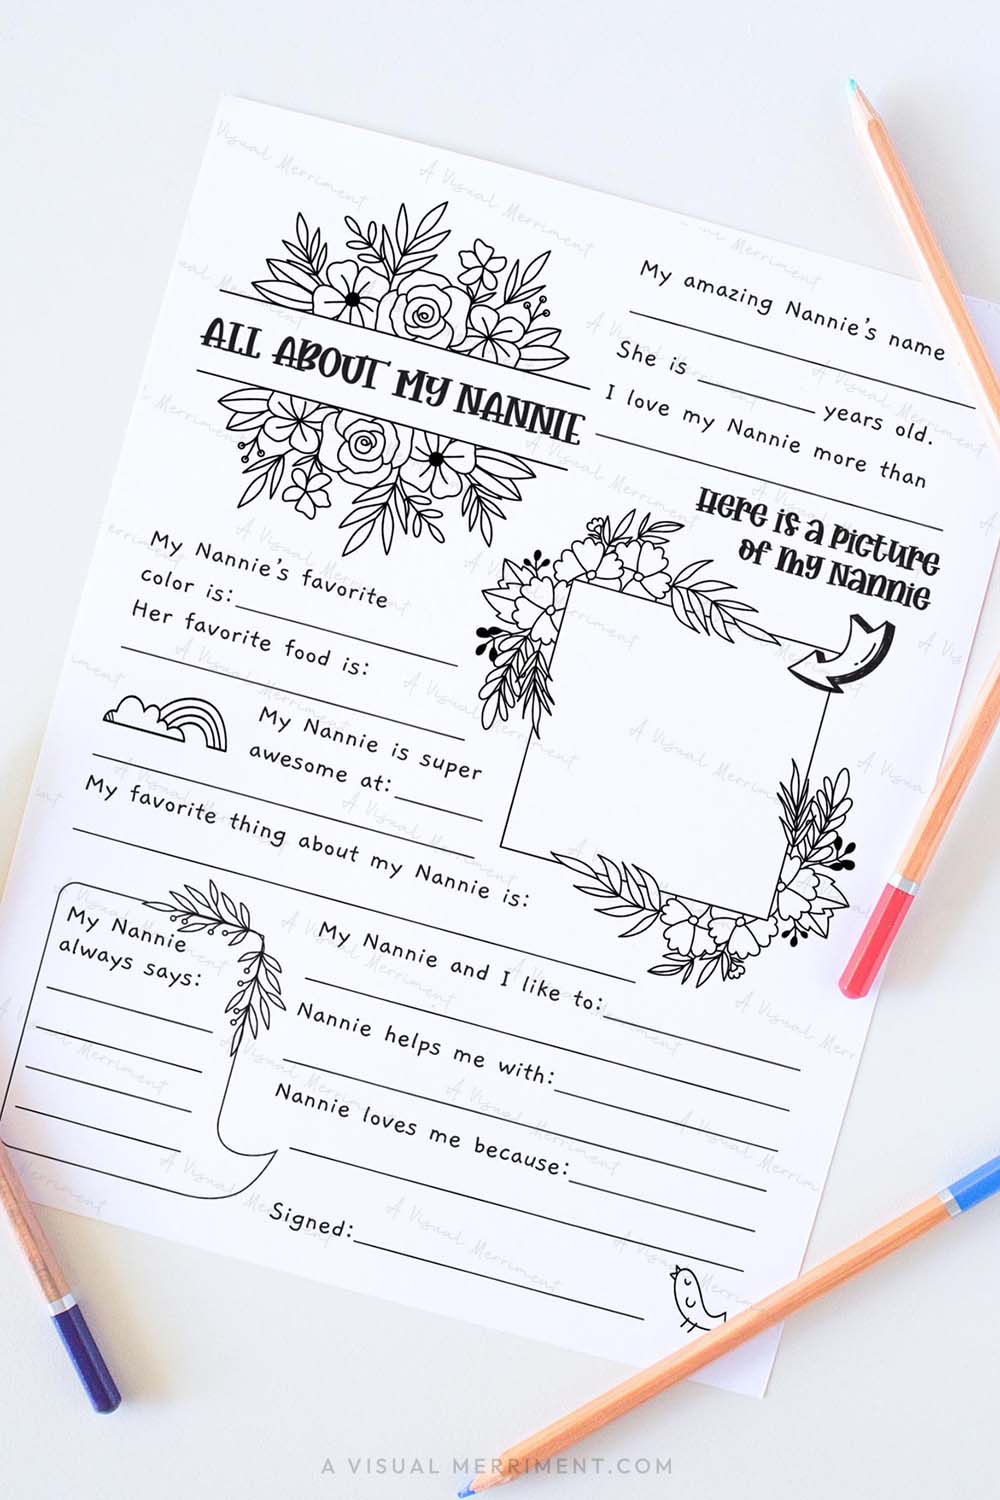 ALL ABOUT MY NANNIE
My amazing Nannie's name
She is ______ years old.
I love my Nannie more than
Here is a picture
of my Nannie
My Nannie's favorite
color is:
Her favorite food is:
My Nannie is super
awesome at:
My favorite thing about my Nannie is:
My Nannie
always says:
My Nannie and I like to:
Nannie helps me with:
Nannie loves me because:
Signed:
A Visual Merriment
A VISUAL MERRIMENT.COM